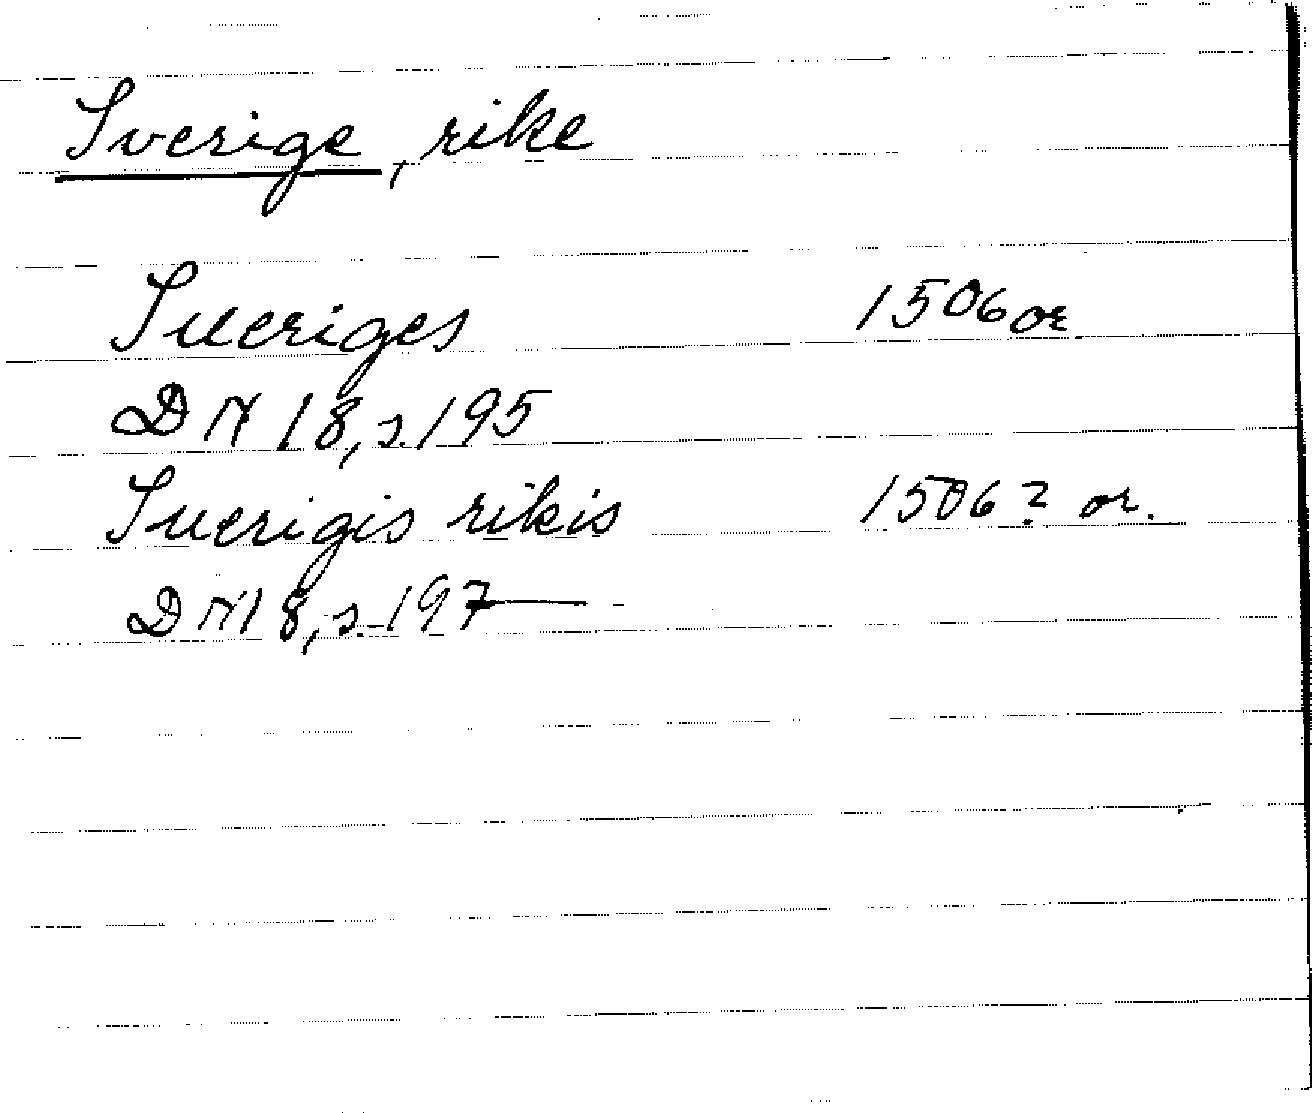 Sverige, rike
Sueriges 1506 or
DN 18, s. 195
Suerigis rikis 1506? or.
DN 18, s. 197